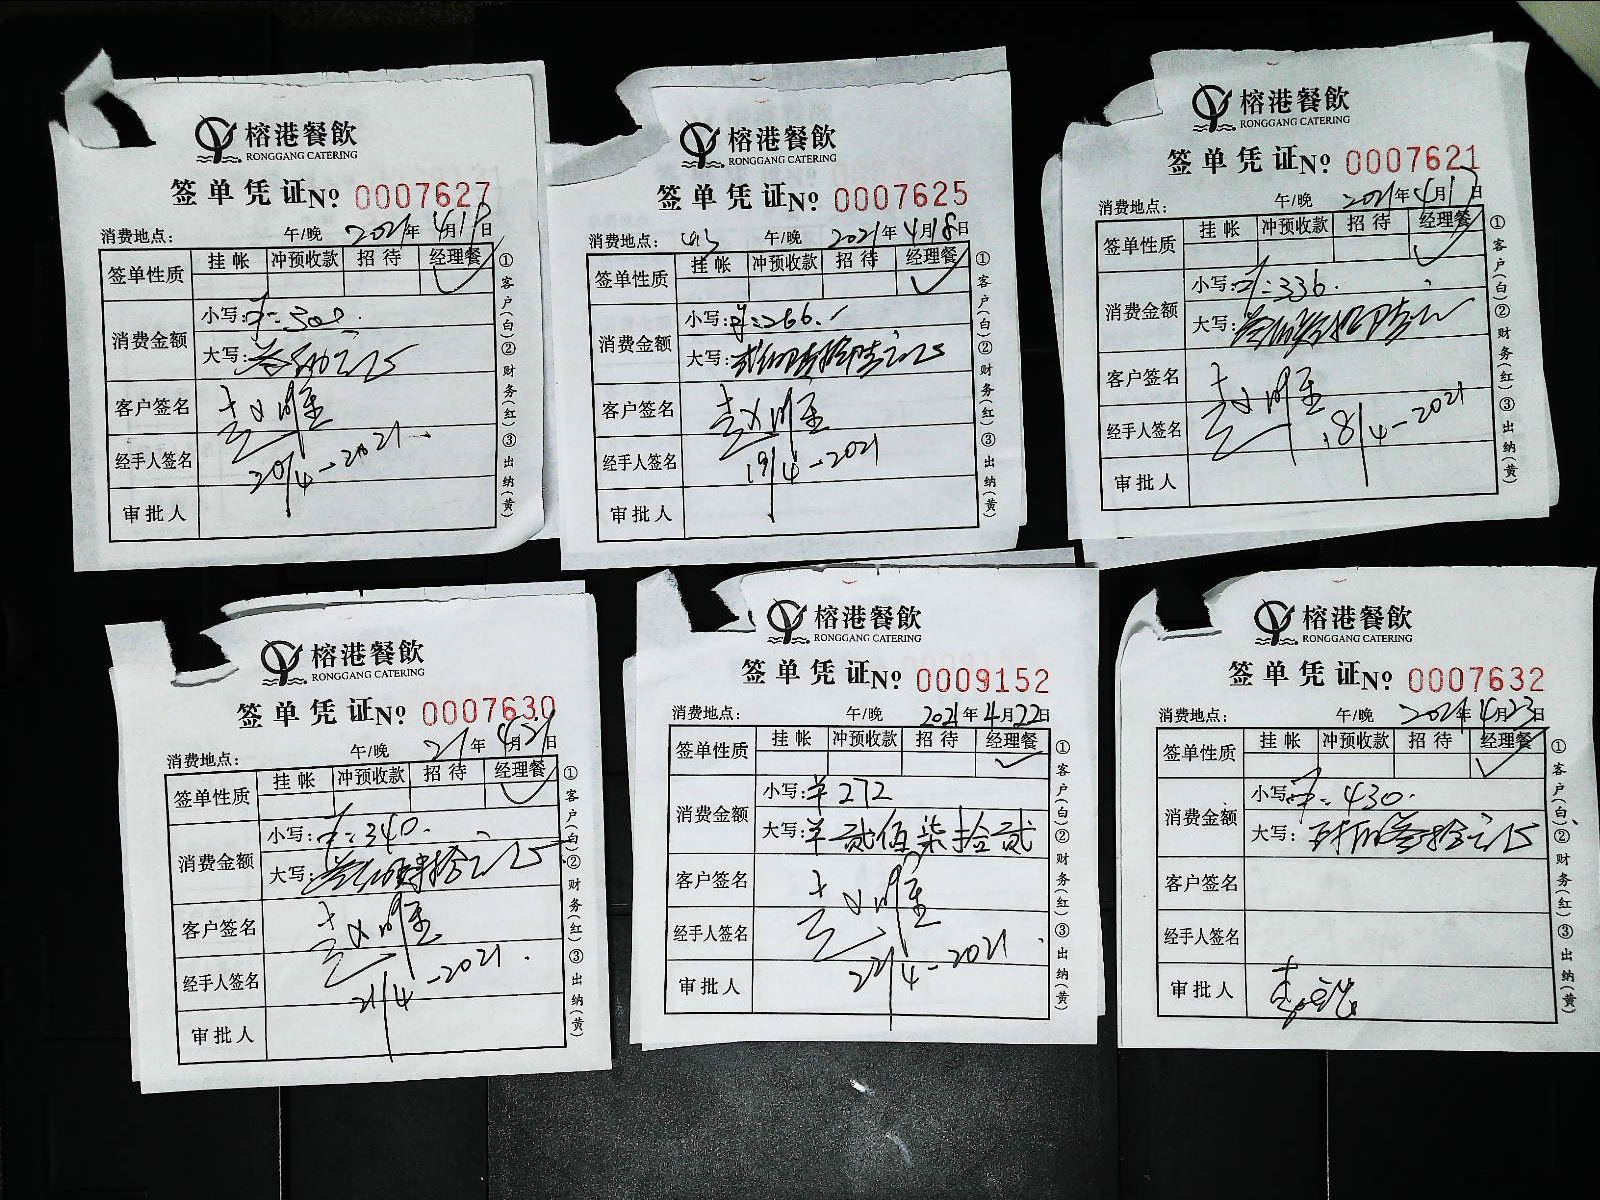 榕港餐飲
RONGGANG CATERING
签单凭证No 0007627
消费地点: 午/晚 2021年4月19日
签单性质 挂帐 冲预收款 招待 经理餐
消费金额 小写:
大写:
客户签名
经手人签名 20/4-2021
审批人
①客户(白)②财务(红)③出纳(黄)
榕港餐飲
RONGGANG CATERING
签单凭证No 0007625
消费地点: 午/晚 2021年4月18日
签单性质 挂帐 冲预收款 招待 经理餐
消费金额 小写: 266.
大写: 贰佰陆拾陆元正
客户签名
经手人签名 19/4-2021
审批人
①客户(白)②财务(红)③出纳(黄)
榕港餐飲
RONGGANG CATERING
签单凭证No 0007621
消费地点: 午/晚 2021年4月17日
签单性质 挂帐 冲预收款 招待 经理餐
消费金额 小写: 336.
大写: 叁佰叁拾陆元
客户签名
经手人签名 18/4-2021
审批人
①客户(白)②财务(红)③出纳(黄)
榕港餐飲
RONGGANG CATERING
签单凭证No 0007630
消费地点: 午/晚 21年4月21日
签单性质 挂帐 冲预收款 招待 经理餐
消费金额 小写: 340.
大写: 叁佰肆拾元正
客户签名
经手人签名 21/4-2021.
审批人
①客户(白)②财务(红)③出纳(黄)
榕港餐飲
RONGGANG CATERING
签单凭证No 0009152
消费地点: 午/晚 2021年4月22日
签单性质 挂帐 冲预收款 招待 经理餐
消费金额 小写: ¥272
大写: ¥贰佰柒拾贰
客户签名
经手人签名 22/4-2021
审批人
①客户(白)②财务(红)③出纳(黄)
榕港餐飲
RONGGANG CATERING
签单凭证No 0007632
消费地点: 午/晚 2021年4月23日
签单性质 挂帐 冲预收款 招待 经理餐
消费金额 小写: 430.
大写: 肆佰叁拾元正
客户签名
经手人签名
审批人
①客户(白)②财务(红)③出纳(黄)